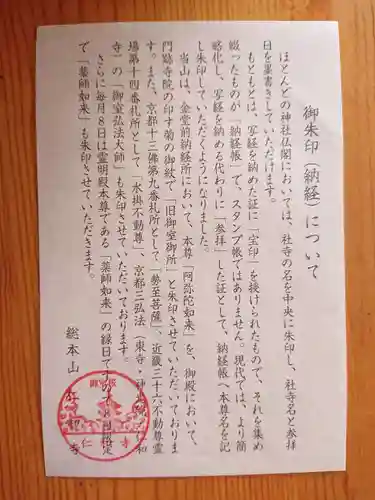 御朱印（納経）について
ほとんどの神社仏閣においては、社寺の名を中央に朱印し、社寺名と参拝
日を墨書きしていただけます。
もともとは、写経を納めた証に「宝印」を授けられたもので、それを集め
綴ったものが「納経帳」で、スタンプ帳ではありません。現代では、より簡
略化し、写経を納める代わりに「参拝」した証として、納経帳へ本尊名を記
し朱印していただくようになりました。
当山は、金堂前納経所において、本尊「阿弥陀如来」を、御殿において、
門跡寺院の印す菊の御紋で「旧御室御所」と朱印させていただいておりま
す。また、京都十三佛第九番札所として「勢至菩薩」、近畿三十六不動尊霊
場第十四番札所として「水掛不動尊」、京都三弘法（東寺・神光院・仁和
寺）の「御室弘法大師」も朱印させていただいております。
さらに毎月８日は霊明殿本尊である「薬師如来」の縁日ですので８日限定
で「薬師如来」も朱印させていただきます。
総本山 仁和寺
仁 寺